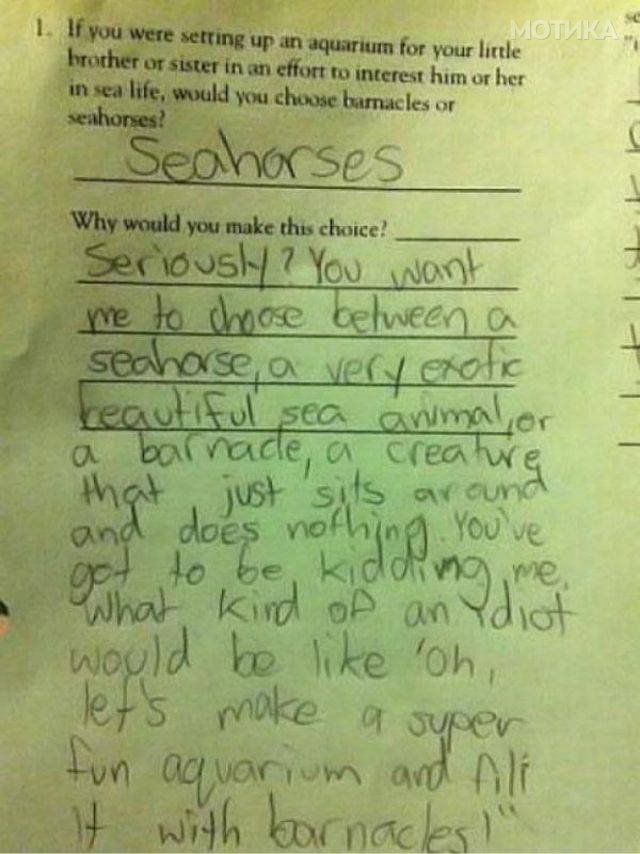 МОТИКА
1. If you were setting up an aquarium for your little
brother or sister in an effort to interest him or her
in sea life, would you choose barnacles or
seahorses?
Seahorses
Why would you make this choice?
Seriously? You want
me to choose between a
seahorse, a very exotic
beautiful sea animal, or
a barnacle, a creature
that just sits around
and does nothing. You've
got to be kidding me.
What kind of an idiot
would be like 'oh,
let's make a super
fun aquarium and fill
it with barnacles!"